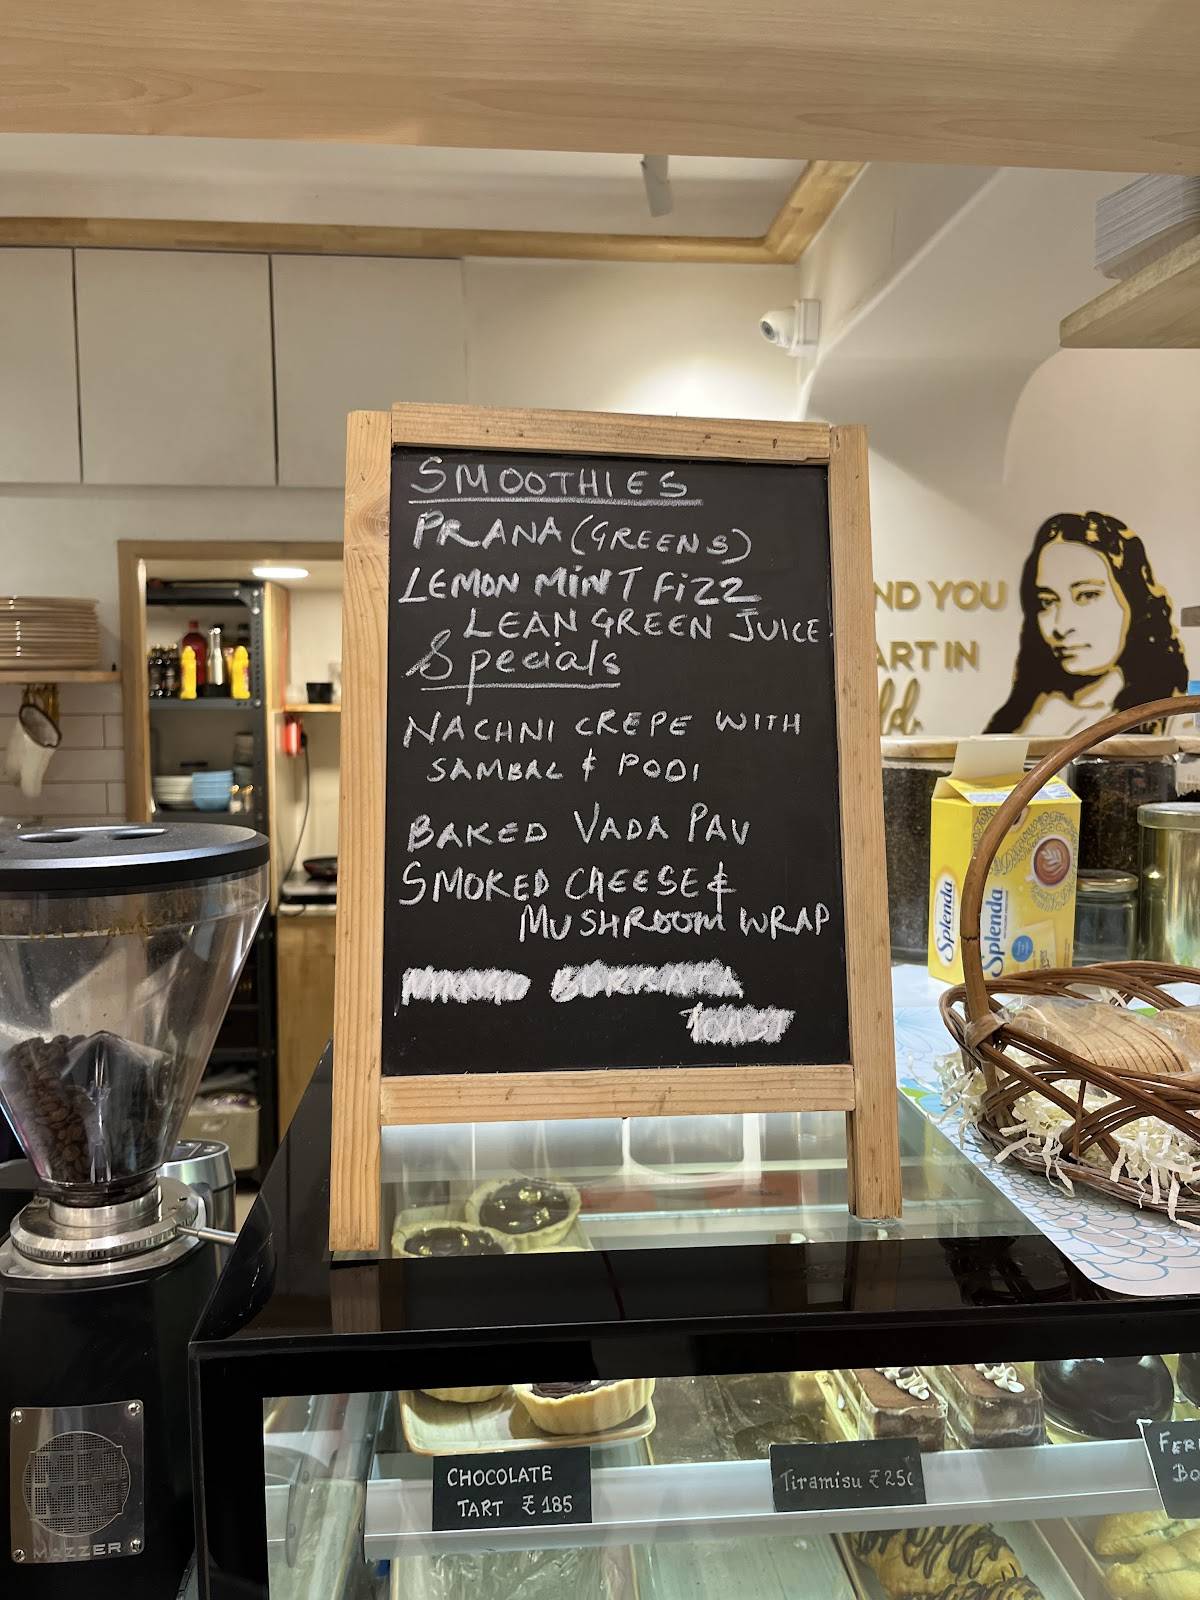 SMOOTHIES
PRANA (GREENS)
LEMON MINT FIZZ
LEAN GREEN JUICE.
Specials
NACHNI CREPE WITH
SAMBAL & PODI
BAKED VADA PAV
SMOKED CHEESE &
MUSHROOM WRAP
MANGO BURRATA
TOAST
ND YOU
ART IN
Splenda
Splenda
CHOCOLATE
TART ₹ 185
Tiramisu ₹ 250
FER
BO
MAZZER